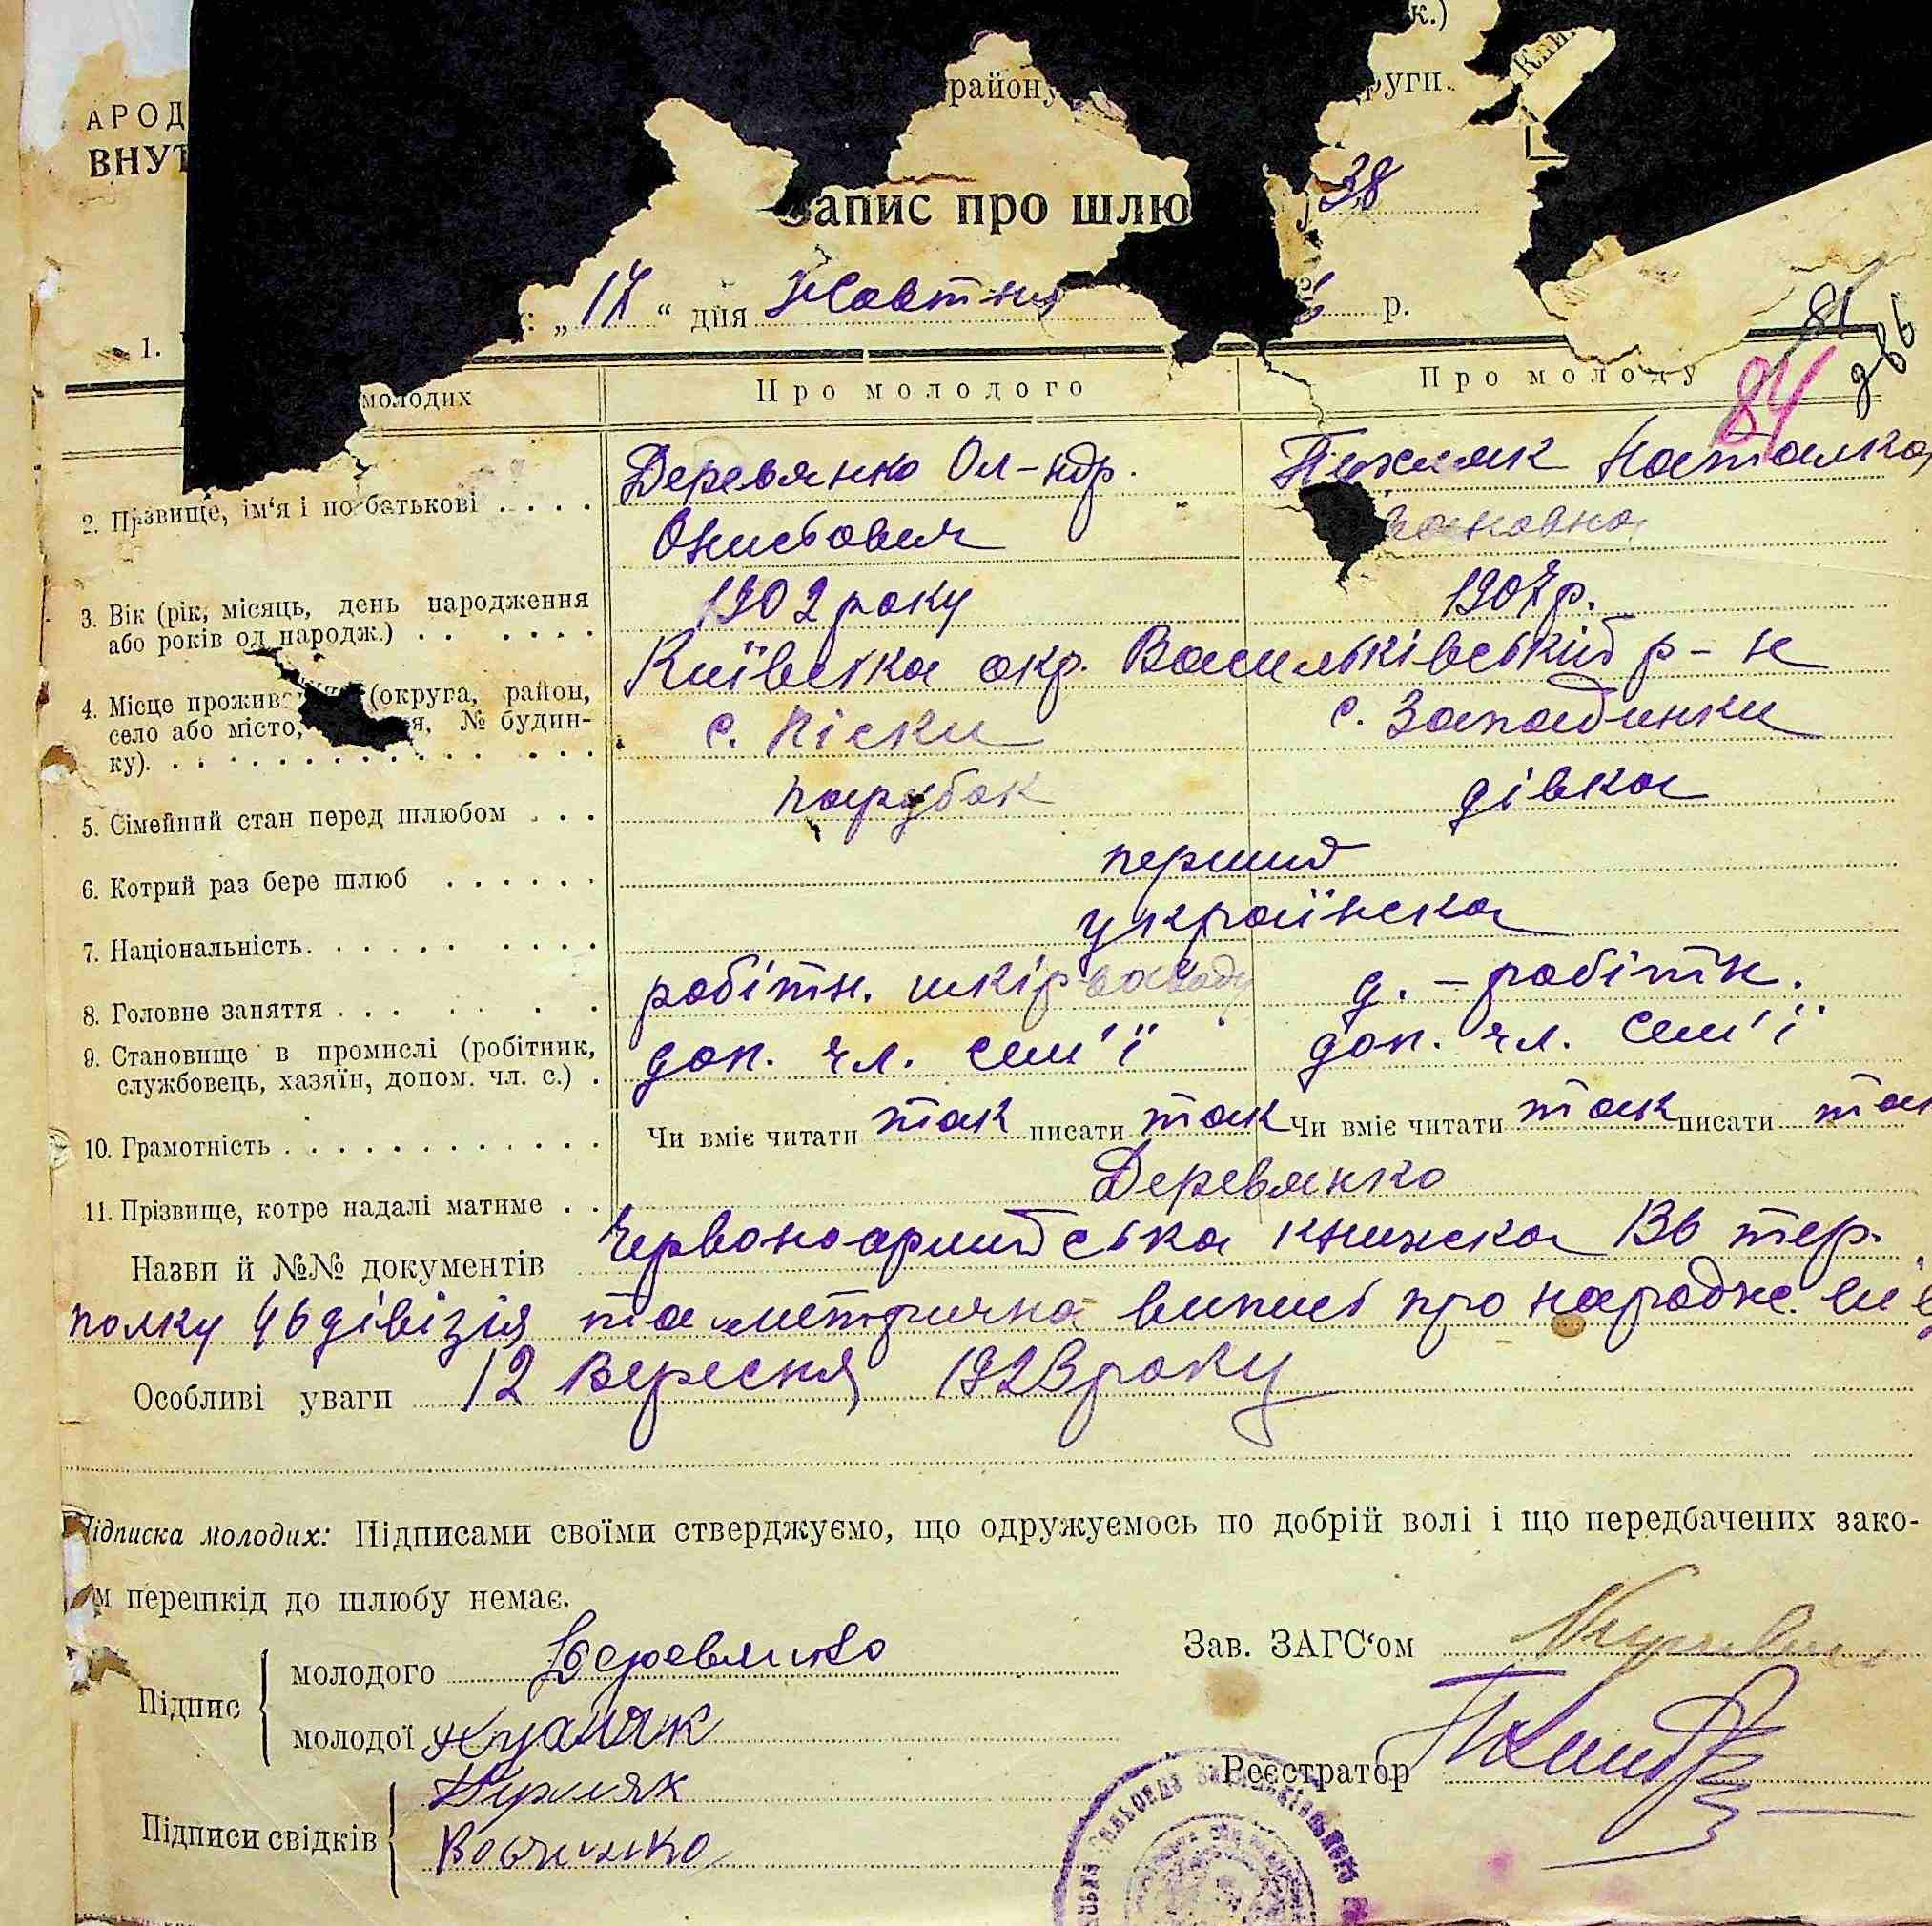 к.)
району
руги.
Кни
АРОД
ВНУТ
апис про шлю
38
„17“ дня Жовтня р.
1.
81
84
молодих
Про молодого
Про молоду
2. Прізвище, ім'я і по батькові . . . .
Деревянко Ол-ндр. Наталка
3. Вік (рік, місяць, день народження
або років од народж.) . . . . . .
1902 року 1907 р.
4. Місце прожив (округа, район,
село або місто, я, № будин-
ку).
Київська окр. Васильківський р-н
с. Піски с. Западинки
5. Сімейний стан перед шлюбом . . .
парубок дівка
6. Котрий раз бере шлюб . . . . . .
перший
7. Національність
українська
8. Головне заняття
робітн. шкірзаводу д. - робітн.
9. Становище в промислі (робітник,
службовець, хазяїн, допом. чл. с.) .
доп. чл. сем'ї доп. чл. сем'ї
10. Грамотність
Чи вміє читати так писати так Чи вміє читати так писати так
11. Прізвище, котре надалі матиме . .
Деревянко
Назви й №№ документів Червоноармійська книжка 136 тер.
полку 46 дівізія та метрична випись про народж.
Особливі уваги 12 вересня 1926 року
Підписка молодих: Підписами своїми стверджуємо, що одружуємось по добрій волі і що передбачених зако-
м перешкід до шлюбу немає.
Підпис
молодого Деревянко
молодої
Зав. ЗАГС'ом
Реєстратор
Підписи свідків